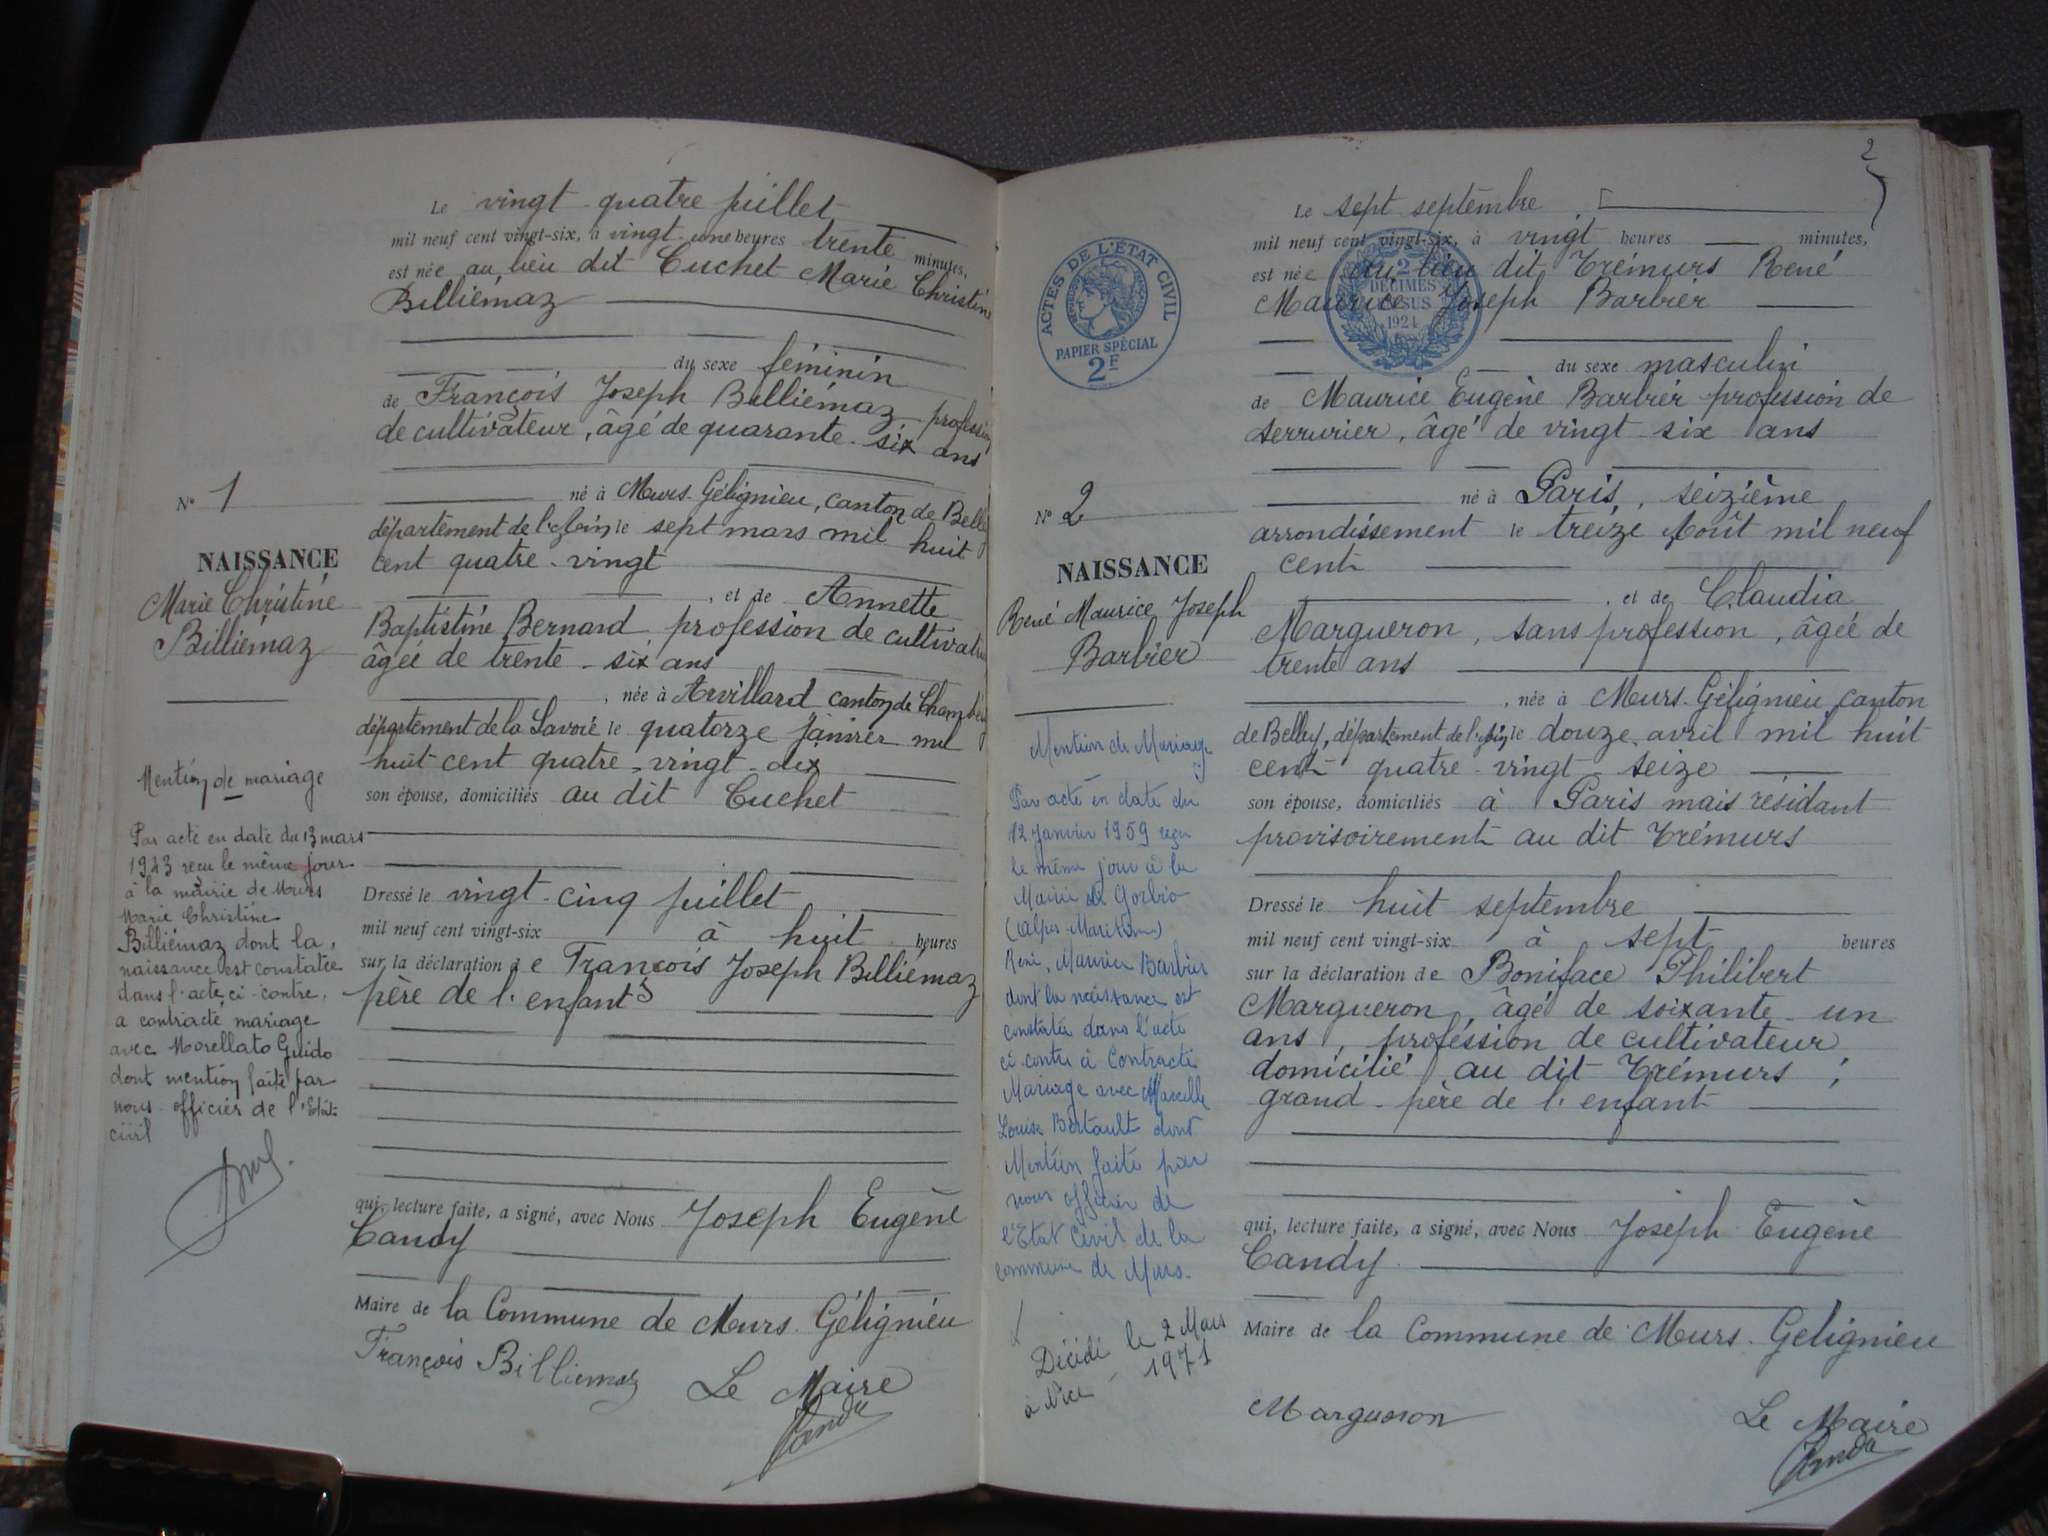 Le vingt-quatre juillet
mil neuf cent vingt-six, à vingt-une heures trente minutes,
est née au lieu dit Cuchet Marie Christine
Billiémaz
du sexe féminin
de François Joseph Billiémaz profession
de cultivateur, âgé de quarante-six ans
né à Murs-Gélignieu, canton de Belley
département de l'Ain, le sept mars mil huit
cent quatre-vingt
, et de Annette
Baptistine Bernard, profession de cultivateur
âgée de trente-six ans
, née à Arvillard canton de Chambéry
département de la Savoie le quatorze janvier mil
huit cent quatre-vingt-dix
son épouse, domiciliés au dit Cuchet
Dressé le vingt-cinq juillet
mil neuf cent vingt-six à huit heures
sur la déclaration de François Joseph Billiémaz
père de l'enfant
qui, lecture faite, a signé, avec Nous Joseph Eugène
Candy
Maire de la Commune de Murs-Gélignieu
François Billiemaz Le Maire
Candy
N° 1
NAISSANCE
Marie Christine
Billiémaz
Mention de mariage
Par acte en date du 13 mars
1943 reçu le même jour
à la mairie de Murs
Marie Christine
Billiémaz dont la
naissance est constatée
dans l'acte ci-contre,
a contracté mariage
avec Morellato Guido
dont mention faite par
nous officier de l'Etat
civil
2
ACTES DE L'ÉTAT CIVIL
PAPIER SPÉCIAL
2F
2
DÉCIMES
EN SUS
1924
Le sept septembre
mil neuf cent vingt-six, à vingt heures minutes,
est née au lieu dit Trémurs René
Maurice Joseph Barbier
du sexe masculin
de Maurice Eugène Barbier profession de
serrurier, âgé de vingt-six ans
né à Paris, seizième
arrondissement le treize Août mil neuf
cent
, et de Claudia
Margueron, sans profession, âgée de
trente ans
, née à Murs-Gélignieu canton
de Belley, département de l'Ain, le douze avril mil huit
cent quatre-vingt-seize
son épouse, domiciliés à Paris mais résidant
provisoirement au dit Trémurs
Dressé le huit septembre
mil neuf cent vingt-six à sept heures
sur la déclaration de Boniface Philibert
Margueron, âgé de soixante-un
ans, profession de cultivateur
domicilié au dit Trémurs,
grand-père de l'enfant
qui, lecture faite, a signé, avec Nous Joseph Eugène
Candy
Maire de la Commune de Murs-Gelignieu
Margueron Le Maire
Candy
N° 2
NAISSANCE
René Maurice Joseph
Barbier
Mention de Mariage
Par acte en date du
12 Janvier 1959 reçu
le même jour à la
Mairie de Gorbio
(Alpes-Maritimes)
René, Maurice Barbier
dont la naissance est
constatée dans l'acte
ci-contre à Contracté
Mariage avec Marcelle
Louise Bertault dont
Mention faite par
nous officier de
l'Etat Civil de la
commune de Murs.
Décédé le 2 Mars
1971
à Nice